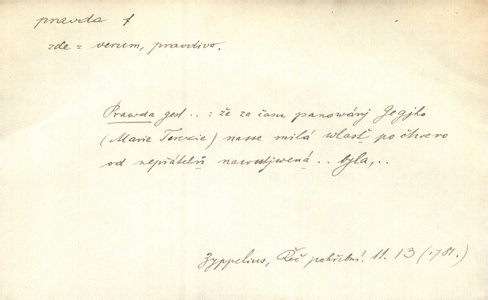 pravda f
zde = verum, pravdivo.
Prawda gest ..: že za času panowánj Gegjho
(Marie Terezie) nasse milá wlasť po čtwero
od nepřátelů nawsstjwená .. byla, ..
Zyppelius, Řeč pohřební. 11. 13 (1781.)